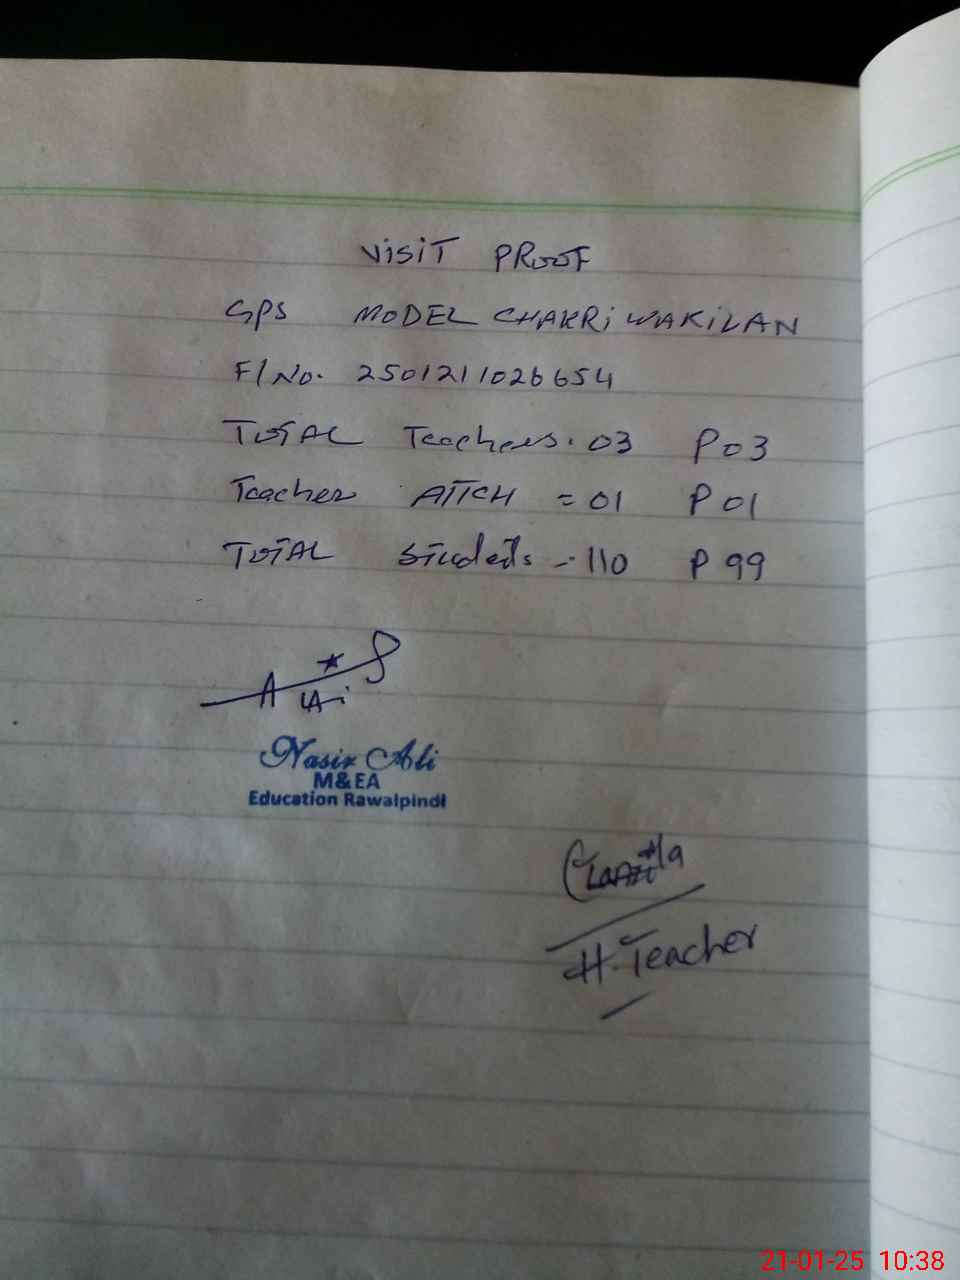 VISIT PROOF
GPS MODEL CHAKRI WAKILAN
F/No. 2501211026654
TOTAL Teachers. 03 P 03
Teacher ATTCH = 01 P 01
TOTAL Students - 110 P 99
Nasir Ali
M&EA
Education Rawalpindi
H. Teacher
21-01-25 10:38